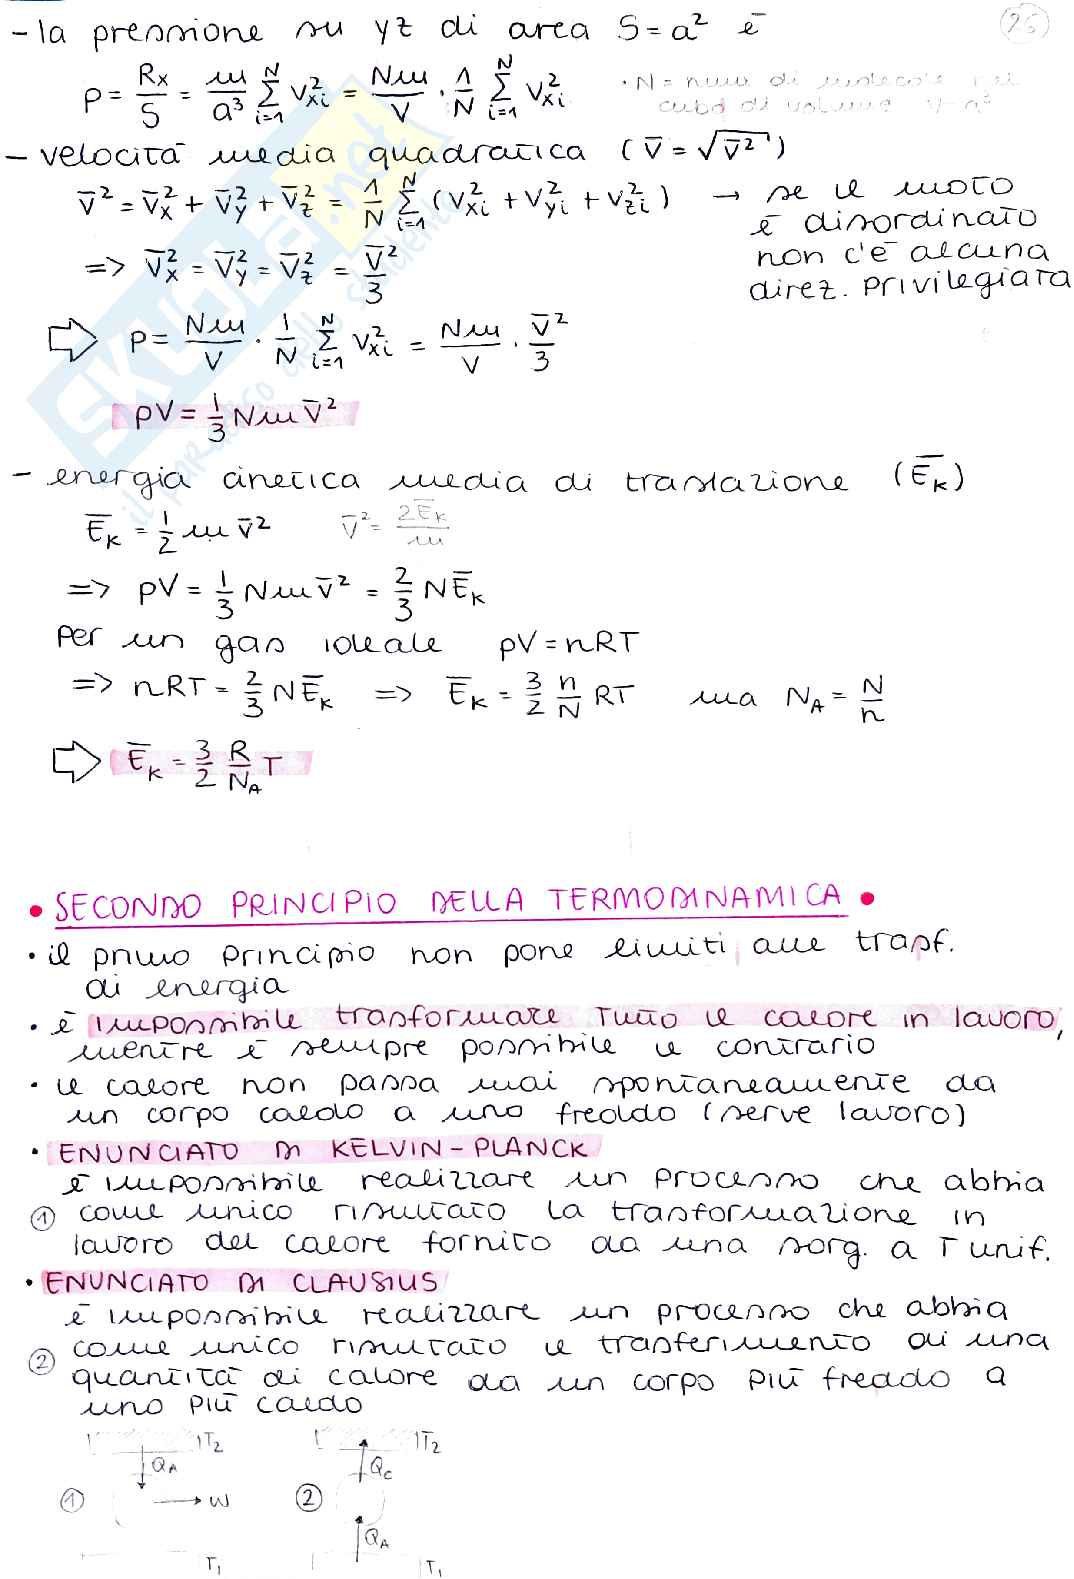 - la pressione su yz di area S = a² è
25
p = Rx/S = m/a³ ∑(i=1→N) v²xi = Nm/V · 1/N ∑(i=1→N) v²xi
• N = num di molecole nel
cubo di volume V = a³
- velocità media quadratica (v̄ = √v̄²)
v̄² = v̄x² + v̄y² + v̄z² = 1/N ∑(i=1→N) (v²xi + v²yi + v²zi) → se il moto
è disordinato
non c'è alcuna
direz. privilegiata
=> v̄x² = v̄y² = v̄z² = v̄²/3
⇒ p = Nm/V · 1/N ∑(i=1→N) v²xi = Nm/V · v̄²/3
pV = 1/3 Nm v̄²
- energia cinetica media di traslazione (Ēk)
Ēk = 1/2 m v̄² v̄² = 2Ēk/m
=> pV = 1/3 Nm v̄² = 2/3 NĒk
Per un gas ideale pV = nRT
=> nRT = 2/3 NĒk => Ēk = 3/2 n/N RT ma NA = N/n
⇒ Ēk = 3/2 R/NA T
• SECONDO PRINCIPIO DELLA TERMODINAMICA •
• il primo principio non pone limiti alle trasf.
di energia
• è IMPOSSIBILE trasformare TUTTO il calore in lavoro,
mentre è sempre possibile il contrario
• il calore non passa mai spontaneamente da
un corpo caldo a uno freddo (serve lavoro)
• ENUNCIATO DI KELVIN-PLANCK
è impossibile realizzare un processo che abbia
① come unico risultato la trasformazione in
lavoro del calore fornito da una sorg. a T unif.
• ENUNCIATO DI CLAUSIUS
è impossibile realizzare un processo che abbia
② come unico risultato il trasferimento di una
quantità di calore da un corpo più freddo a
uno più caldo
T2
QA
① → W
T1
T2
QC
②
QA
T1
SKUOLA.net
il paradiso dello studente